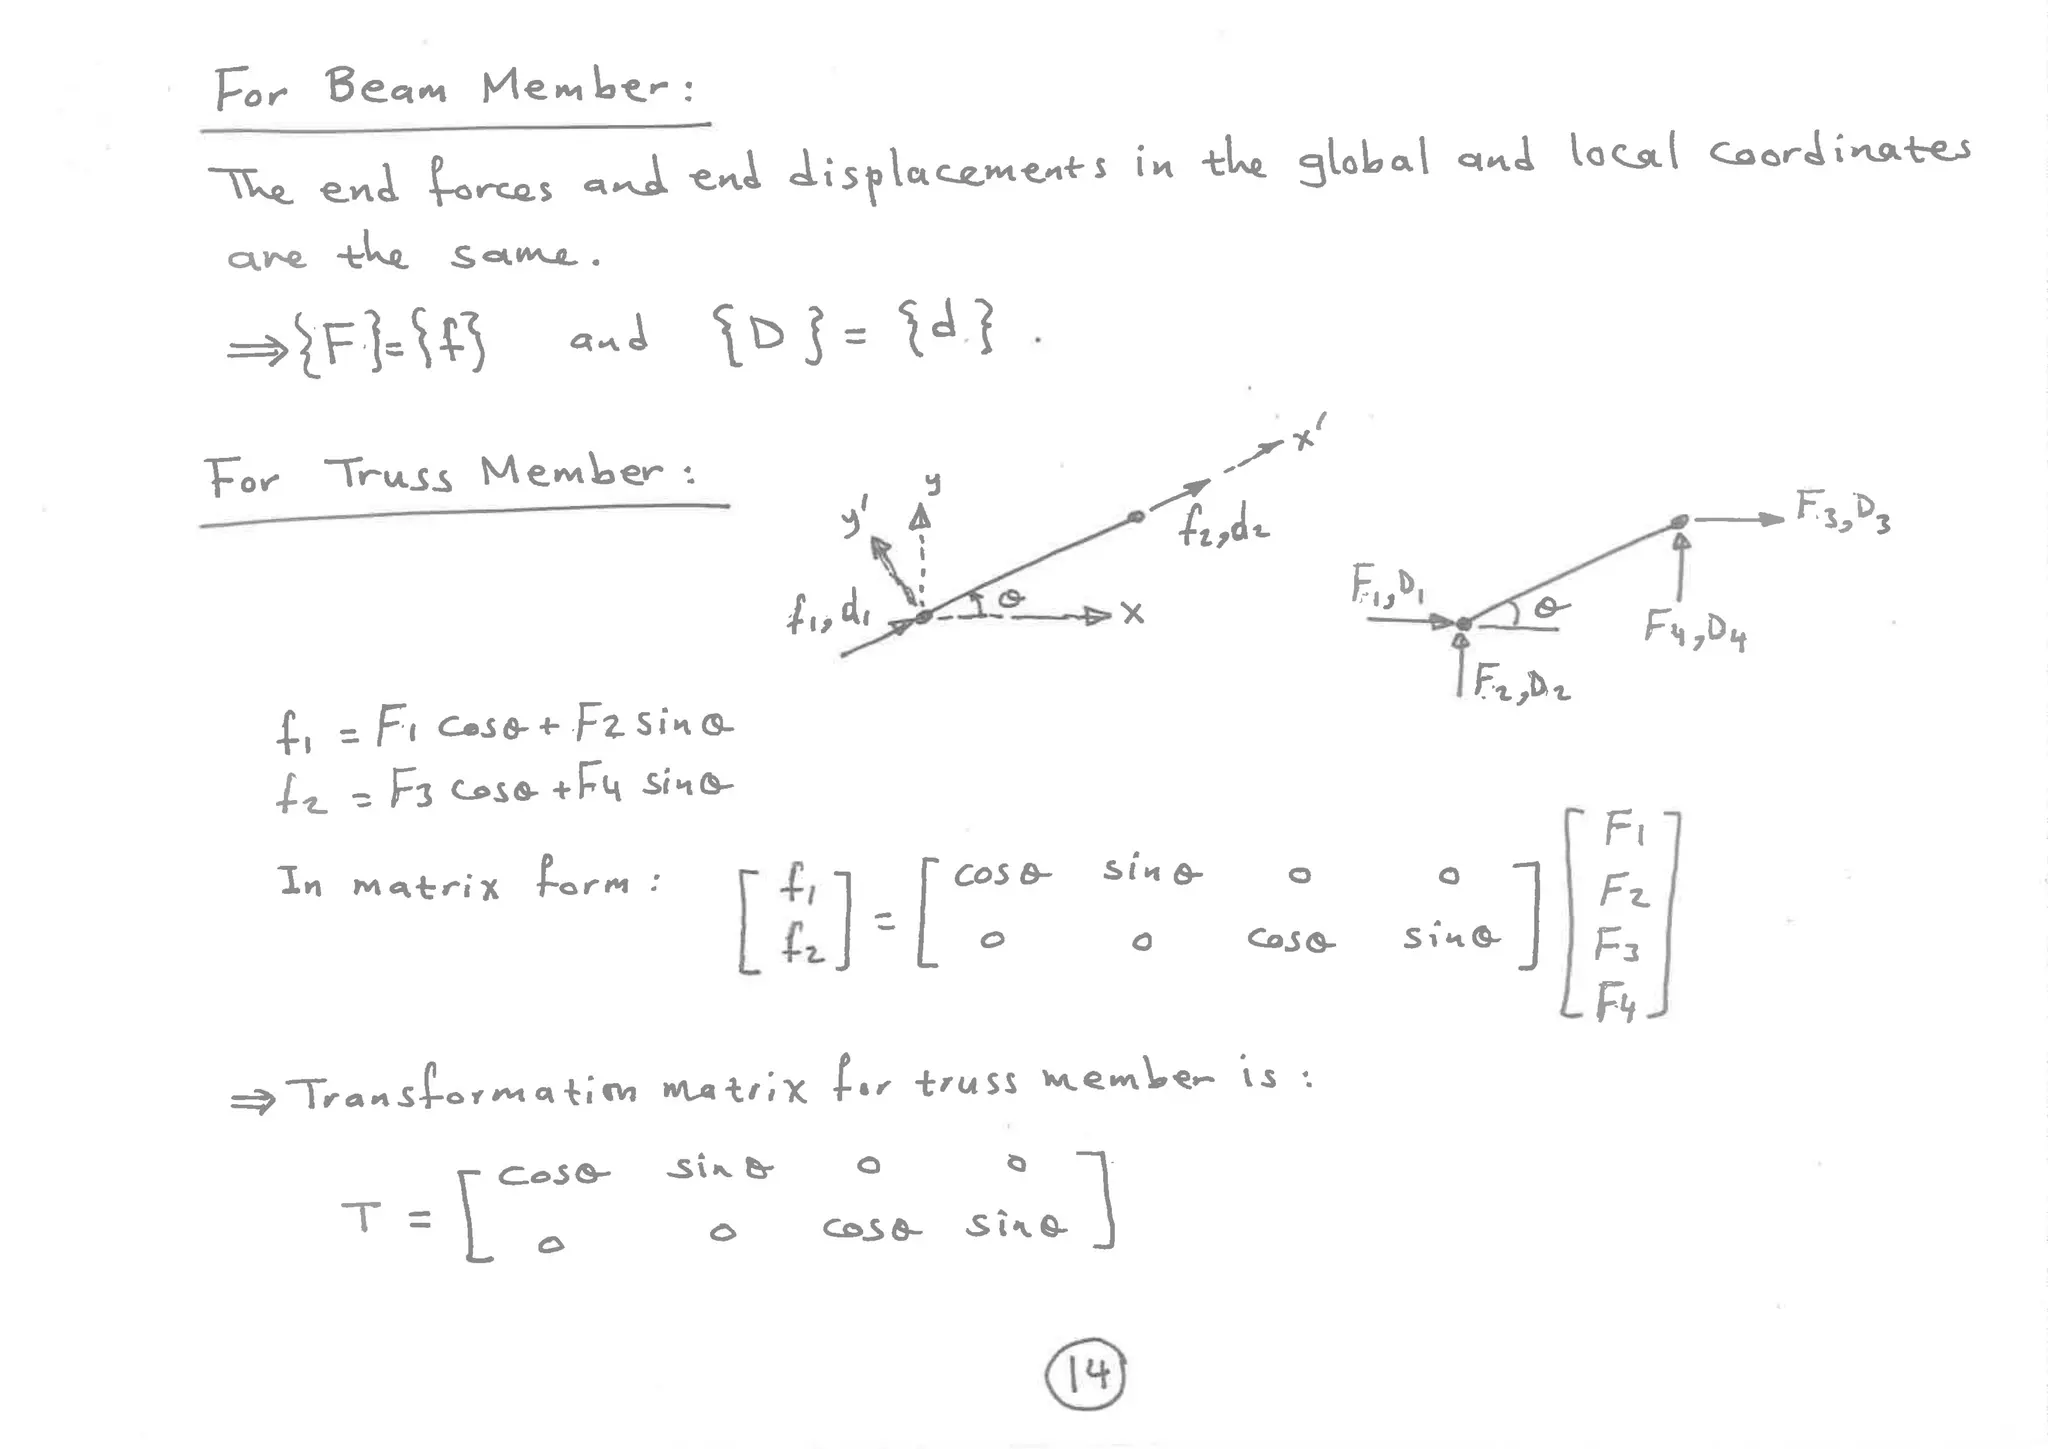 For Beam Member:
The end forces and end displacements in the global and local coordinates
are the same.
⇒{F}={f} and {D}={d}.
For Truss Member:
x'
y
y'
f2,d2
F3,D3
f1,d1
θ
x
F1,D1
θ
F4,D4
F2,D2
f1 = F1 cosθ + F2 sinθ
f2 = F3 cosθ + F4 sinθ
In matrix form: [f1 f2] = [cosθ sinθ 0 0
0 0 cosθ sinθ] [F1 F2 F3 F4]
⇒ Transformation matrix for truss member is:
T = [cosθ sinθ 0 0
0 0 cosθ sinθ]
14